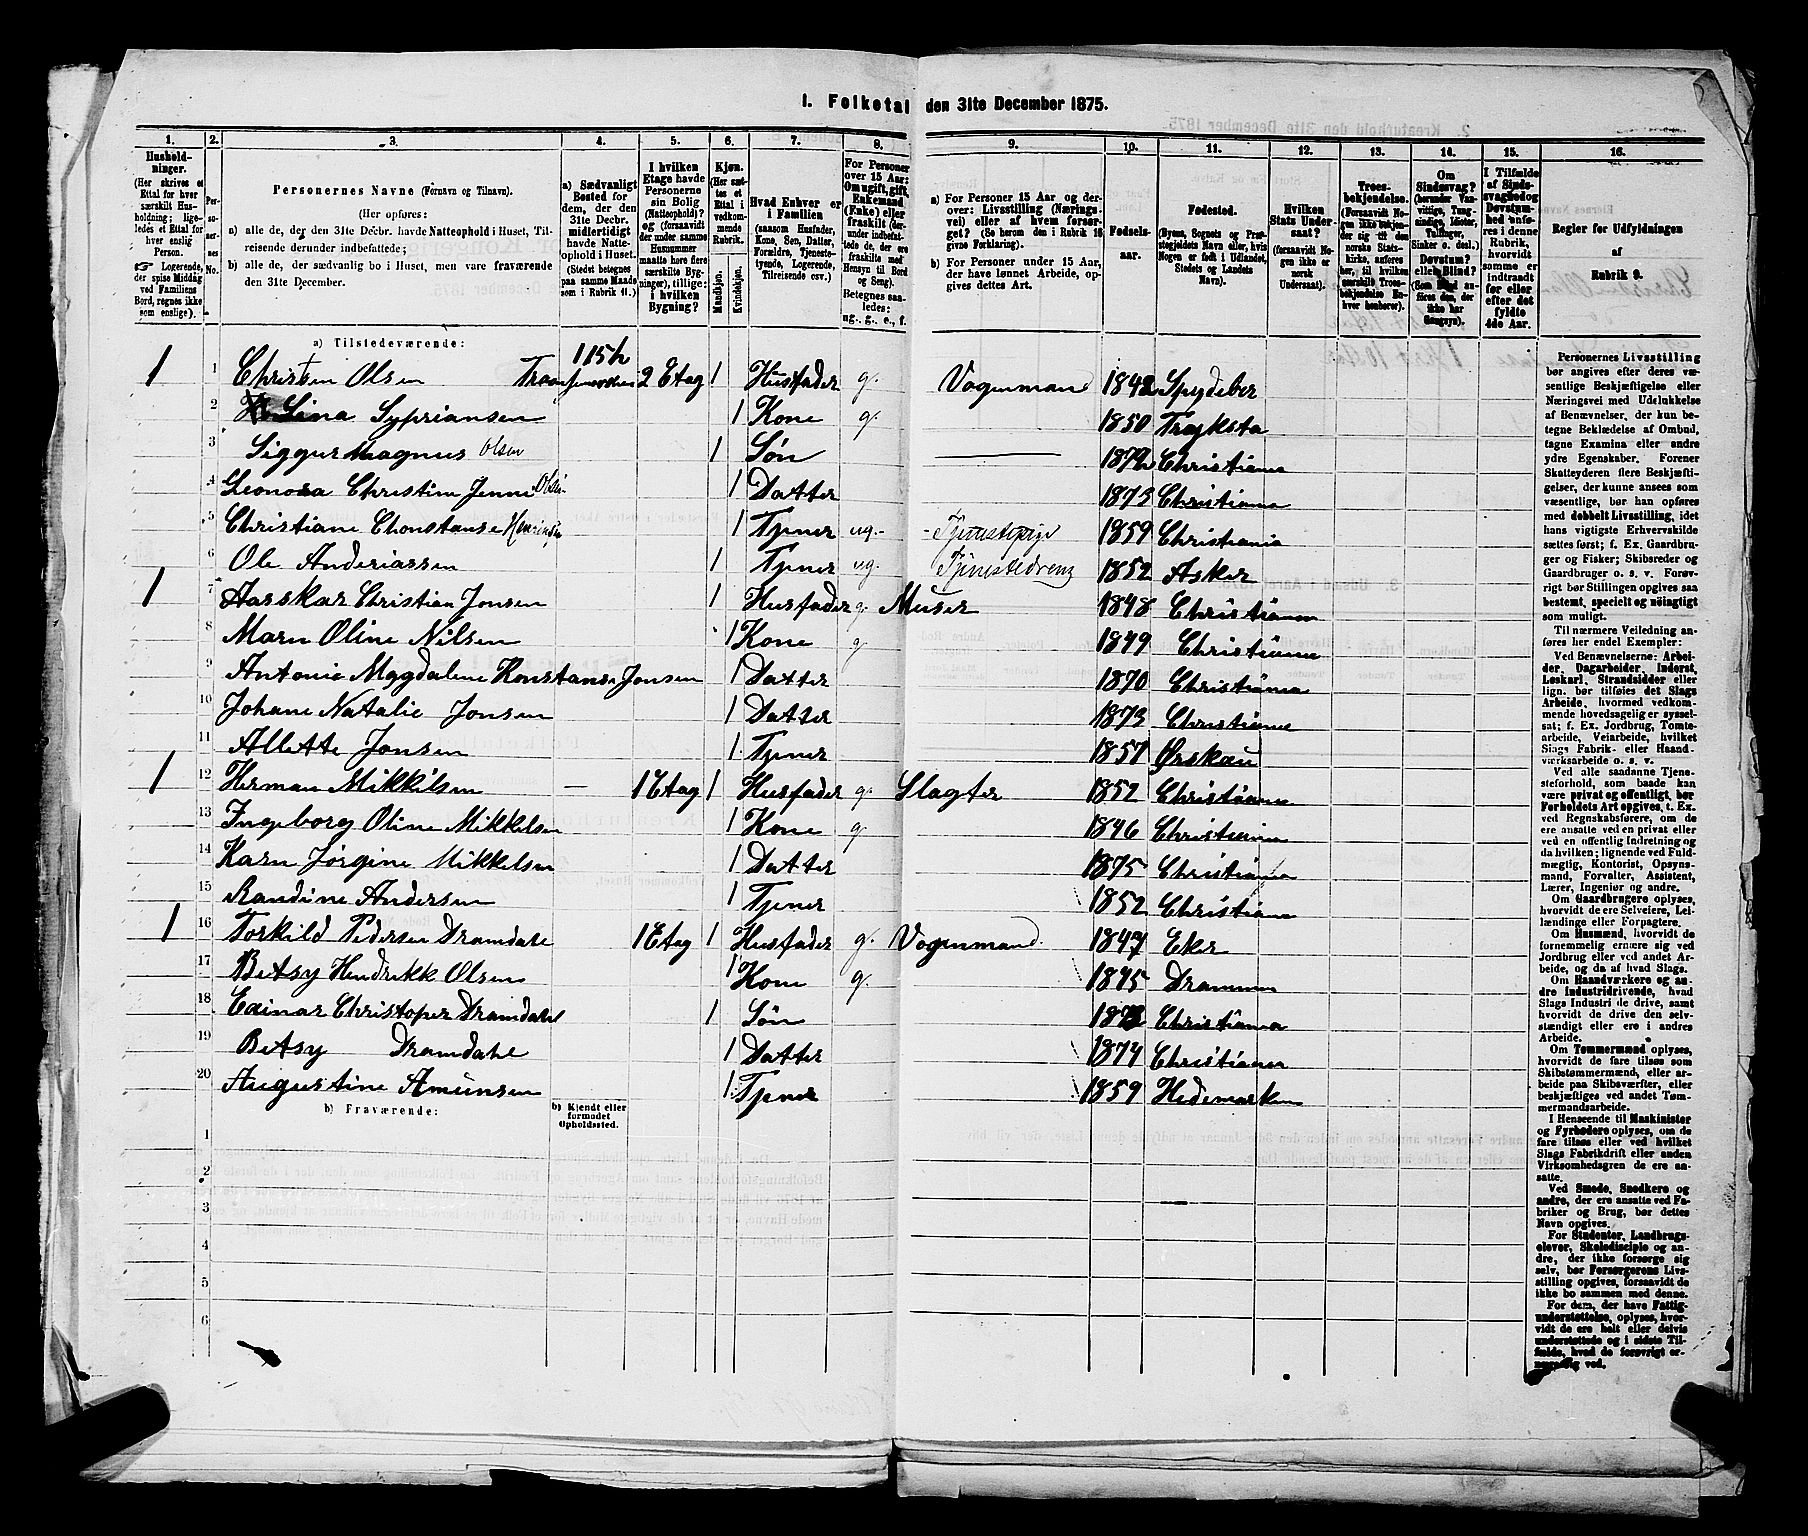 1. Folketal den 31te December 1875.
1. 2. 3. 4. 5. 6. 7. 8. 9. 10. 11. 12. 13. 14. 15. 16.
Hushold-
ninger.
(Her skrives et
Ettal for hver
særskilt Hus-
holdning; lige-
ledes et Ettal
for hver
enslig
Person.
Logerende,
der spise Middag
ved Familiens
Bord, regnes ikke
som enslige).
Per-
so-
ner-
nes
No.
Personernes Navne (Fornavn og Tilnavn).
(Her opføres:
a) alle de, der den 31te Decbr. havde Natteophold i Huset, Til-
reisende derunder indbefattede;
b) alle de, der sædvanlig bo i Huset, men vare fraværende
den 31te December.
a) Sædvanligt
Bosted for
dem, der den
31te Decbr.
midlertidigt
havde Natte-
ophold i Huset.
(Stedet betegnes
paa samme Maade
som i Rubrik 11.)
I hvilken
Etage havde
Personerne
sin Bolig
(Natteophold)?
og (forsaavidt
der under samme
Husnummer
maatte høre flere
særskilte Byg-
ninger), tillige:
i hvilken
Bygning?
Kjøn.
(Her sæt-
tes et
Ettal i
vedkom-
mende
Rubrik.)
Mandkjøn.
Kvindekjøn.
Hvad Enhver er
i Familien
(saasom Husfader,
Kone, Søn, Datter,
Forældre, Tjeneste-
tyende, Logerende,
Tilreisende osv.)
For Personer
over 15 Aar:
Om ugift, gift,
Enkemand
(Enke) eller
fraskilt
Betegnes saa-
ledes:
ug., g., e., f.
a) For Personer 15 Aar og der-
over: Livsstilling (Nærings-
vei) eller af hvem forsør-
get? (Se herom den i Rubrik 16
givne Forklaring).
b) For Personer under 15 Aar,
der have lønnet Arbeide, op-
gives dettes Art.
Fødsels-
aar.
Fødested.
(Byens, Sognets og Præ-
stegjeldets Navn eller, hvis
Nogen er født i Udlandet,
Stedets og Landets
Navn).
Hvilken
Stats Under-
saat?
(forsaavidt No-
gen ikke er
norsk
Undersaat).
Troes-
bekjendelse.
(Forsaavidt No-
gen ikke bekjen-
der sig til den
norske Stats-
kirke, anføres
her, til hvilken
særskilt Troes-
bekjendelse En-
hver henhører).
Om
Sindssvag?
(herunder Van-
vittige, Tung-
sindige, Idioter,
Tullinger,
Sinker o. desl.)
Døvstum?
eller Blind?
I Tilfælde
af Sinds-
svaghed og
Døvstum-
hed anfø-
res i denne
Rubrik,
hvorvidt
samme er
indtraadt
før eller
efter det
fyldte
4de Aar.
Regler for Udfyldningen
af
Rubrik 9.
a) Tilstedeværende:
1 1 Christen Olsen 115h 2 Etag 1 Husfader g. Vogenmand 1842 Spydeber
2 Lina Sypriansen 1 Kone g. 1850 Trøksta
3 Siggur Magnus Olsen 1 Søn 1872 Christiania
4 Leonora Christine Jenni Olsen 1 Datter 1873 Christiania
5 Christiane Chonstanse 1 Tjener ug. Tjenestepige 1859 Christiania
6 Ole Anderiassen 1 Tjener ug. Tjenestedreng 1852 Asker
1 7 Aarskar Christian Jonsen 1 Husfader g. Muser 1848 Christiania
8 Marn Oline Nilsen 1 Kone g 1849 Christiania
9 Antonie Magdalene Konstanse Jonsen 1 Datter 1870 Christiania
10 Johane Natalie Jonsen 1 Datter 1873 Christiania
11 Allette Jonsen 1 Tjener 1857 Ørskau
1 12 Herman Mikkilsen — 1 Etag 1 Husfader g. Slagter 1852 Christiania
13 Ingeborg Oline Mikkelsen 1 Kone g. 1846 Christiania
14 Karn Jørgine Mikkelsen 1 Datter 1875 Christiania
15 Randine Andersen 1 Tjener 1852 Christiania
1 16 Torkild Pedersen Dramdahl 1 Etag 1 Husfader g. Vogenmand. 1847 Eker
17 Betsy Hendrikk Olsen 1 Kone g. 1845 Drammen
18 Eainar Christoper Dramdahl 1 Søn Christiania
19 Betsy Dramdahl 1 Datter 1874 Christiania
20 Augustine Amunsen 1 Tjener 1859 Hedemarken
b) Fraværende:
b) Kjendt eller
formodet
Opholdssted.
1
2
3
4
5
6
Personernes Livsstilling
bør angives efter deres væ-
sentlige Beskjæftigelse eller
Næringsvei med Udelukkelse
af Benævnelser, der kun be-
tegne Beklædelse af Ombud,
tagne Examina eller andre
ydre Egenskaber. Forener
Skatteyderen flere Beskjæfti-
gelser, der kunne ansees som
væsentlige, bør han opføres
med dobbelt Livsstilling, idet
hans vigtigste Erhvervskilde
sættes først; f. Ex. Gaardbru-
ger og Fisker; Skibsreder og
Gaardbruger o. s. v. Forøv-
rigt bør Stillingen opgives saa
bestemt, specielt og nøiagtigt
som muligt.
Til nærmere Veiledning an-
føres her endel Exempler:
Ved Benævnelserne: Arbei-
der, Dagarbeider, Inderst,
Løskarl, Strandsidder eller
lign. bør tilføies det Slags
Arbeide, hvormed vedkom-
mende hovedsagelig er syssel-
sat; f. Ex. Jordbrug, Tomte-
arbeide, Veiarbeide, hvilket
Slags Fabrik- eller Haand-
værksarbeide o. s. v.
Ved alle saadanne Tjene-
steforhold, som baade kan
være privat og offentligt, bør
Forholdets Art opgives, t. Ex.
ved Regnskabsførere, om de
ere ansatte ved en privat eller
ved en offentlig Indretning og
da hvilken; lignende ved Fuld-
mægtig, Kontorist, Opsyns-
mand, Forvalter, Assistent,
Lærer, Ingeniør og andre.
Om Gaardbrugere oplyses,
hvorvidt de ere Selveiere, Lei-
lændinge eller Forpagtere.
Om Husmænd, hvorvidt de
fornemmelig ernære sig ved
Jordbrug eller ved andet Ar-
beide, og da af hvad Slags.
Om Haandværkere og an-
dre Industridrivende, hvad
Slags Industri de drive, samt
hvorvidt de drive den selv-
stændigt eller ere i andres
Arbeide.
Om Tømmermænd oplyses,
hvorvidt de fare tilsøs som
Skibstømmermænd, eller ar-
beide paa Skibsværfter, eller
beskjæftiges ved andet Tøm-
mermandsarbeide.
I Henseende til Maskinister
og Fyrbødere oplyses, om de
fare tilsøs eller ved hvilket
Slags Fabrikdrift eller anden
Virksomhedsgren de ere an-
satte.
Ved Smede, Snedkere og
andre, der ere ansatte ved Fa-
briker og Brug, bør dettes
Navn opgives.
For Studenter, Landbrugs-
elever, Skoledisciple og an-
dre, der ikke forsørge sig
selv, bør Forsørgerens Livs-
stilling opgives, forsaavidt de
ikke bo sammen med denne.
For dem, der have Fattig-
understøttelse, oplyses, hvor-
vidt de ere helt eller delvis
understøttede og i sidste Til-
fælde, hvad de forøvrigt er-
nære sig ved.